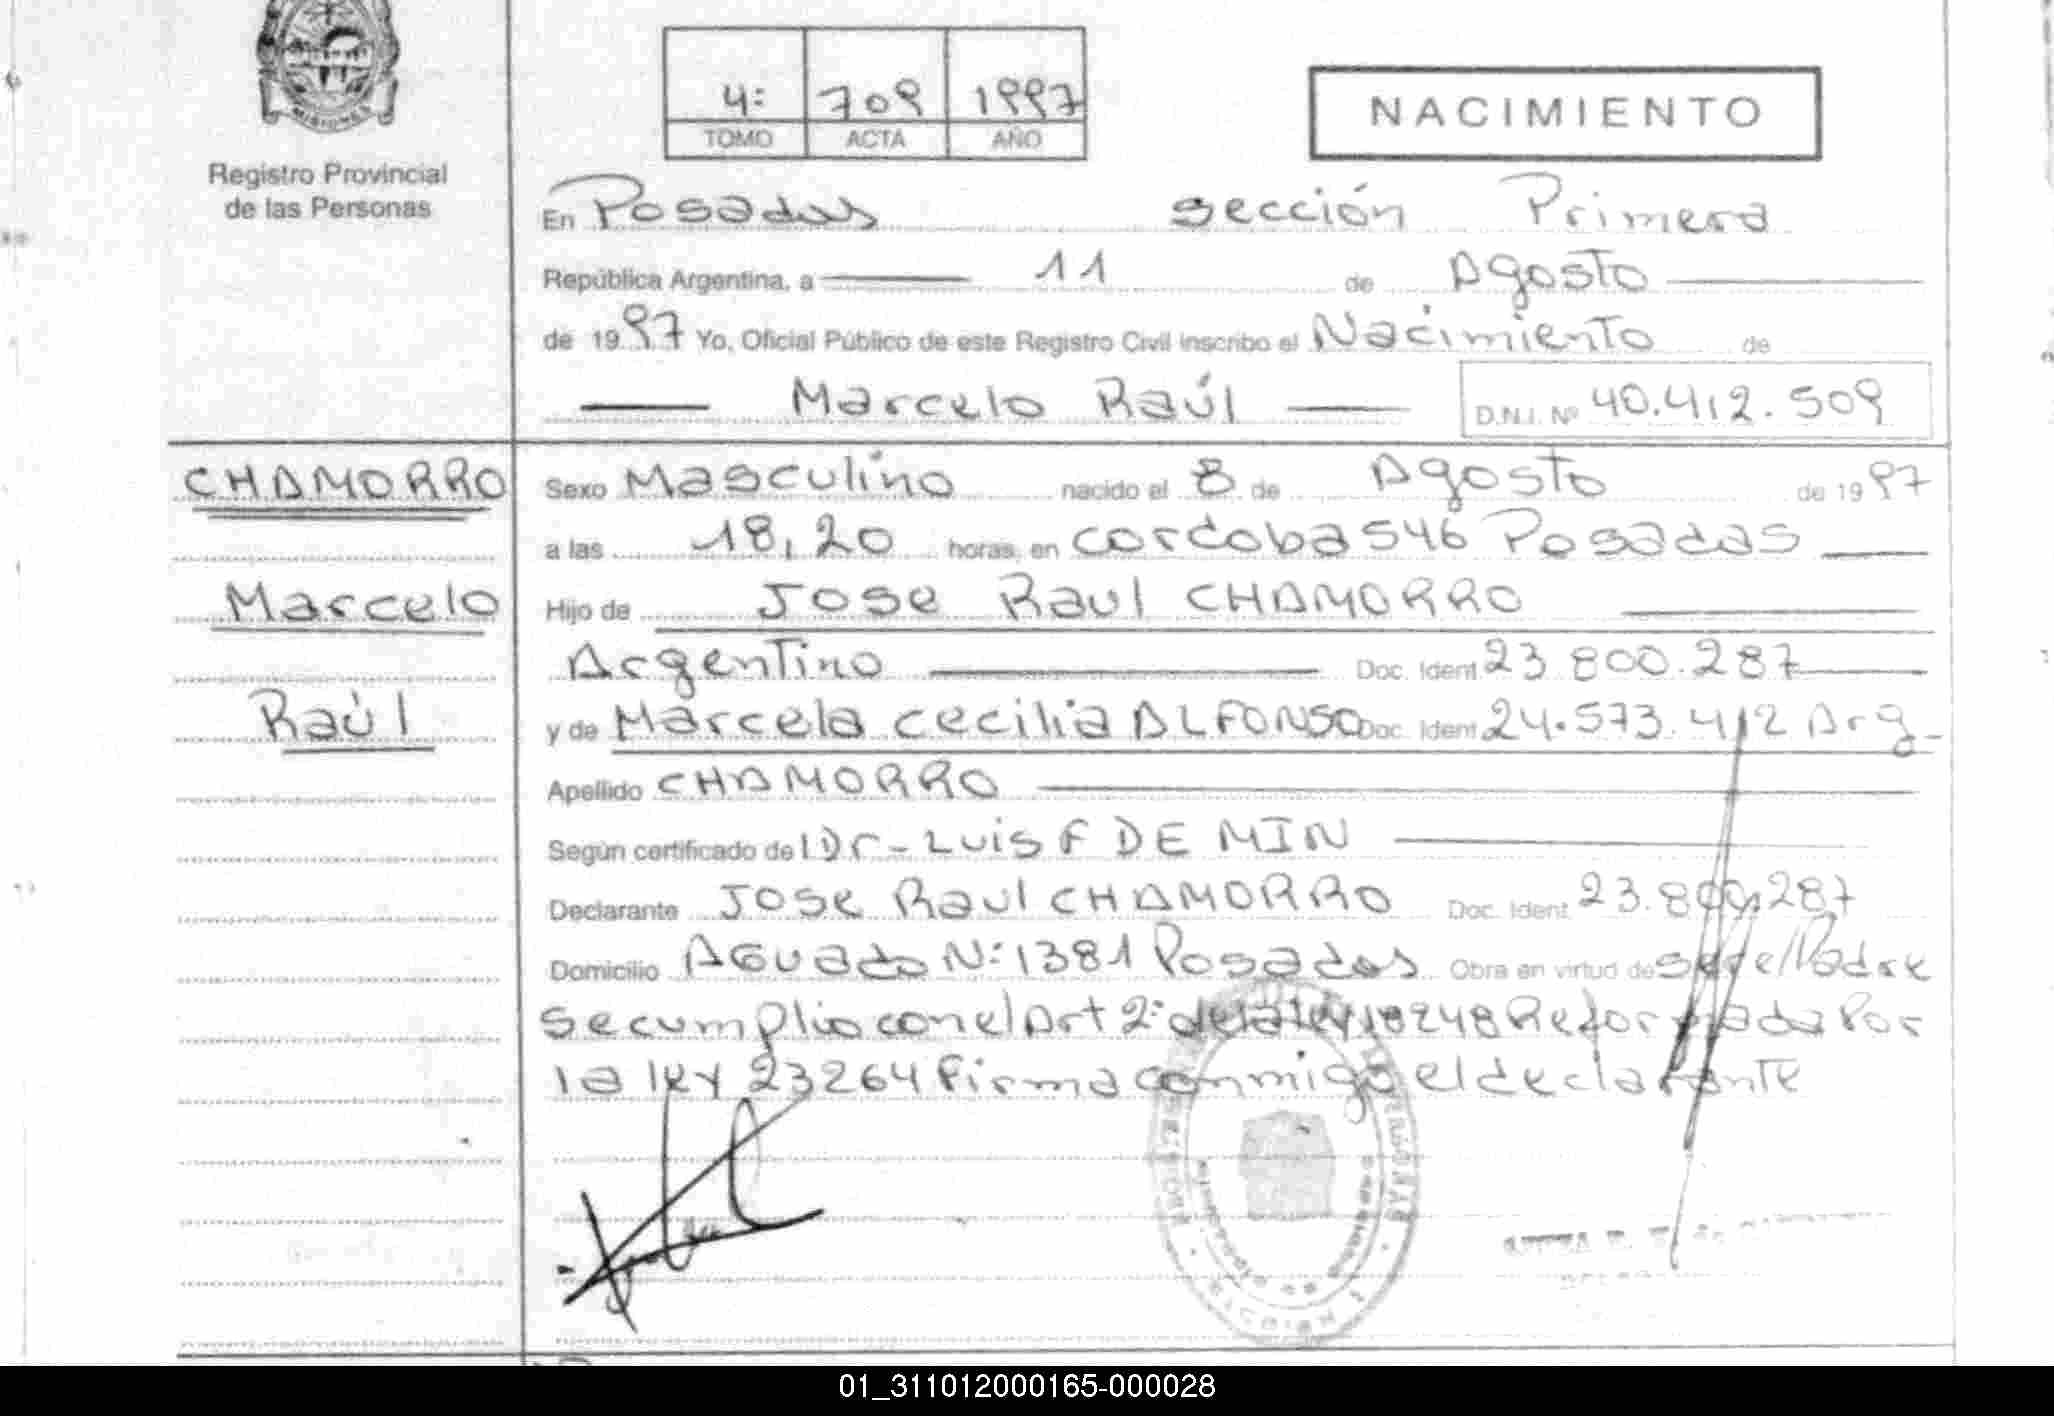 MISIONES
Registro Provincial
de las Personas
4: 709 1997
TOMO ACTA AÑO
NACIMIENTO
En Posadas sección Primera
República Argentina, a 11 de Agosto
de 1997 Yo, Oficial Público de este Registro Civil inscribo el Nacimiento de
Marcelo Raúl D.N.I. Nº 40.412.509
CHAMORRO
Marcelo
Raúl
Sexo Masculino nacido el 8 de Agosto de 1997
a las 18,20 horas, en Cordoba 546 Posadas
Hijo de Jose Raul CHAMORRO
Argentino Doc. Ident. 23.800.287
y de Marcela Cecilia ALFONSO Doc. Ident. 24.573.412 Arg-
Apellido CHAMORRO
Según certificado del Dr- Luis F DE MIN
Declarante Jose Raul CHAMORRO Doc. Ident. 23.800.287
Domicilio Aguado N: 1381 Posadas Obra en virtud de ser el Padre
se cumplio con el Art 2: de la ley 18248 Reformada Por
la ley 23264 firma conmigo el declarante
01_311012000165-000028